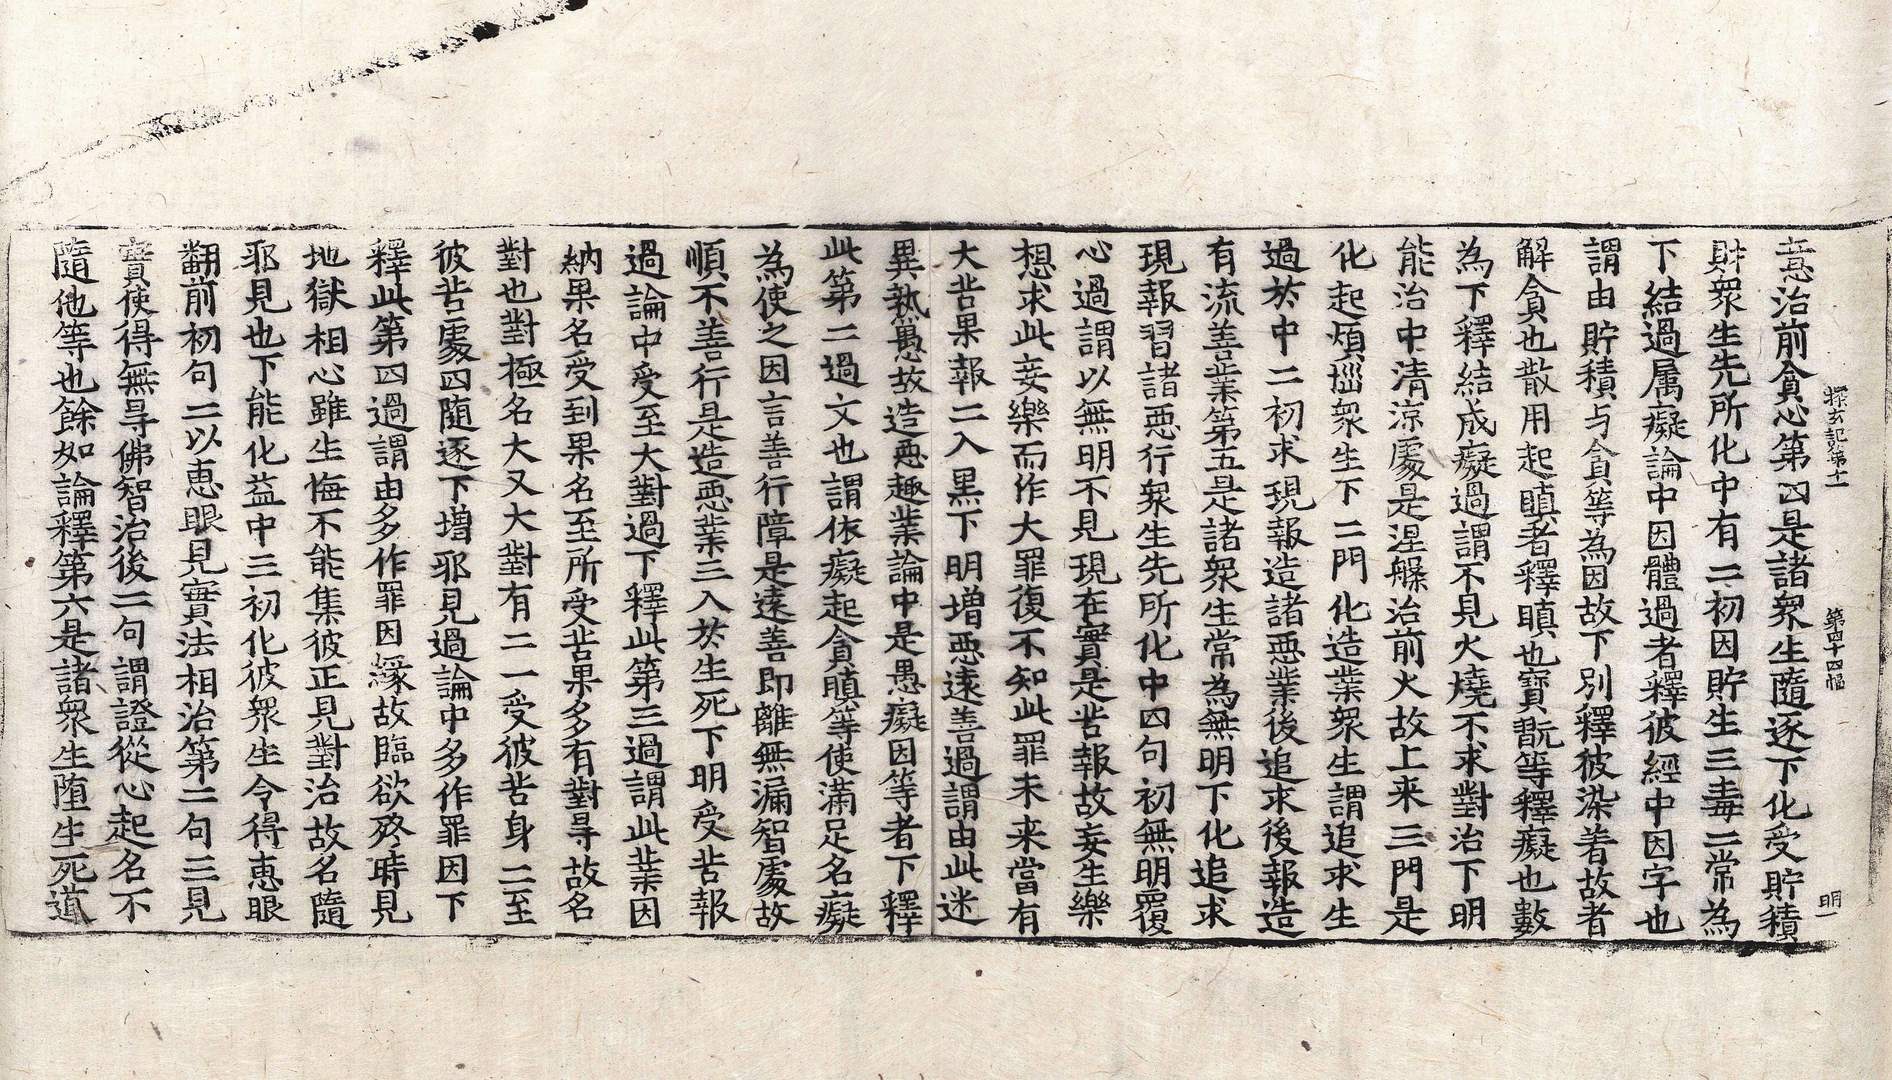 探玄記第十一 第四十四幅 明一
意治前貪心第四是諸衆生隨逐下化受貯積
財衆生先所化中有二初因貯生三毒二常為
下結過属癡論中因體過者釋彼經中因字也
謂由貯積与貪等為因故下別釋彼染著故者
解貪也散用起瞋者釋瞋也寶翫等釋癡也數
為下釋結成癡過謂不見火燒不求對治下明
能治中清涼處是涅槃治前火故上来三門是
化起煩惱衆生下二門化造業衆生謂追求生
過扵中二初求現報造諸惡業後追求後報造
有流善業第五是諸衆生常為無明下化追求
現報習諸惡行衆生先所化中四句初無明覆
心過謂以無明不見現在實是苦報故妄生樂
想求此妄樂而作大罪復不知此罪未来當有
大苦果報二入黒下明増惡遠善過謂由此迷
異熟愚故造惡趣業論中是愚癡因等者下釋
此第二過文也謂依癡起貪瞋等使滿足名癡
為使之因言善行障是遠善即離無漏智處故
順不善行是造惡業三入扵生死下明受苦報
過論中受至大對過下釋此第三過謂此業因
納果名受到果名至所受苦果多有對导故名
對也對極名大又大對有二一受彼苦身二至
彼苦處四随逐下増耶見過論中多作罪因下
釋此第四過謂由多作罪因縁故臨欲終時見
地獄相心雖生悔不能集彼正見對治故名隨
耶見也下能化益中三初化彼衆生令得惠眼
翻前初句二以惠眼見實法相治第二句三見
實使得無导佛智治後二句謂證從心起名不
隨他等也餘如論釋第六是諸衆生堕生死道